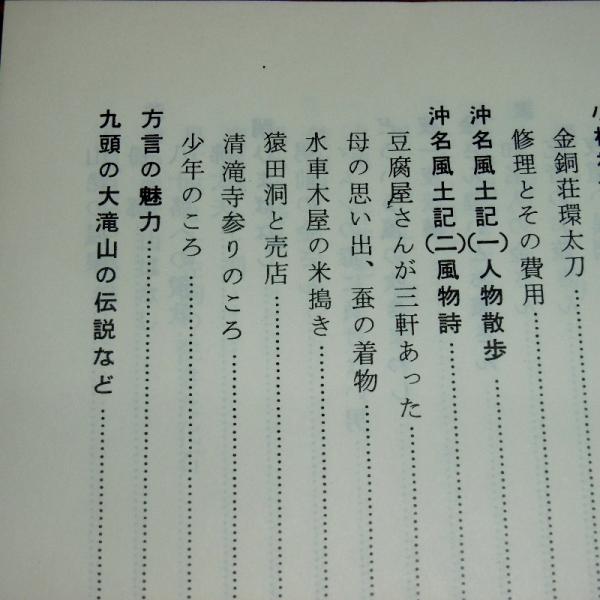 金銅荘環太刀
修理とその費用
沖名風土記(一)人物散歩
沖名風土記(二)風物詩
豆腐屋さんが三軒あった
母の思い出、蚕の着物
水車木屋の米搗き
猿田洞と売店
清滝寺参りのころ
少年のころ
方言の魅力
九頭の大滝山の伝説など